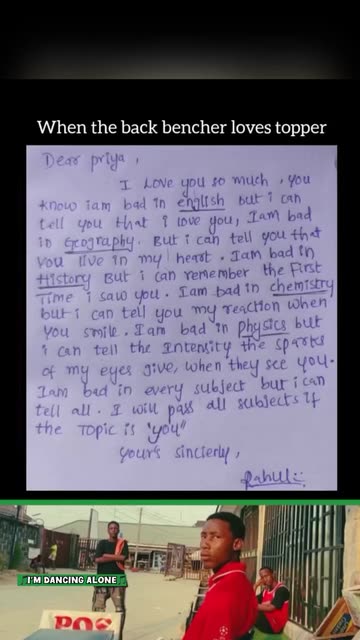 When the back bencher loves topper
Dear priya,
I Love you so much, you
know iam bad in english but i can
tell you that i love you, Iam bad
in Geography. But i can tell you that
you live in my heart. Iam bad in
History But i can remember the First
Time i saw you. Iam bad in chemistry
but i can tell you my reaction when
you smile. Iam bad in physics but
i can tell the Intensity the sparks
of my eyes give, when they see you.
Iam bad in every subject but i can
tell all. I will pass all subjects if
the Topic is "you"
yours sincierly,
Rahul
I'M DANCING ALONE
POS